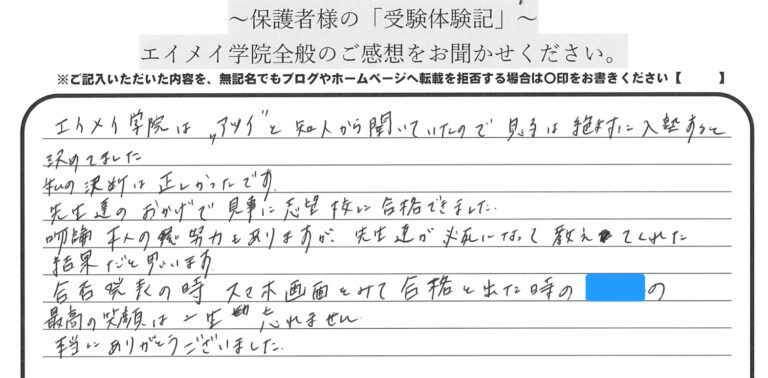 ～保護者様の「受験体験記」～
エイメイ学院全般のご感想をお聞かせください。
※ご記入いただいた内容を、無記名でもブログやホームページへ転載を拒否する場合は〇印をお書きください【　　　】
エイメイ学院は〝アツイ〟と知人から聞いていたので息子は絶対に入塾すると
決めてました
私の決断は正しかったです。
先生達のおかげで見事に志望校に合格できました.
勿論本人の努力もありますが、先生達が必死になって教えてくれた
結果だと思います.
合否発表の時スマホ画面をみて合格と出た時の の
最高の笑顔は一生忘れません
本当にありがとうございました.